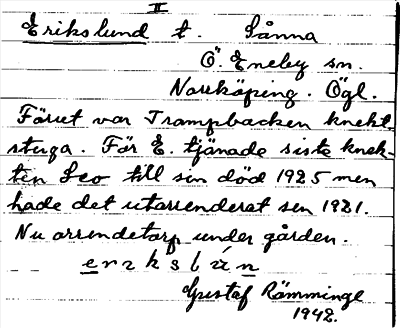 II
Erikslund t. Sånna
Ö. Eneby sn.
Norrköping. Ögl.
Förut var Trampbacken knekt
stuga. För E. tjänade siste knek-
ten Leo till sin död 1925 men
hade det utarrenderat sen 1921.
Nu arrendetorp under gården.
Gustaf Rämminge
1942.